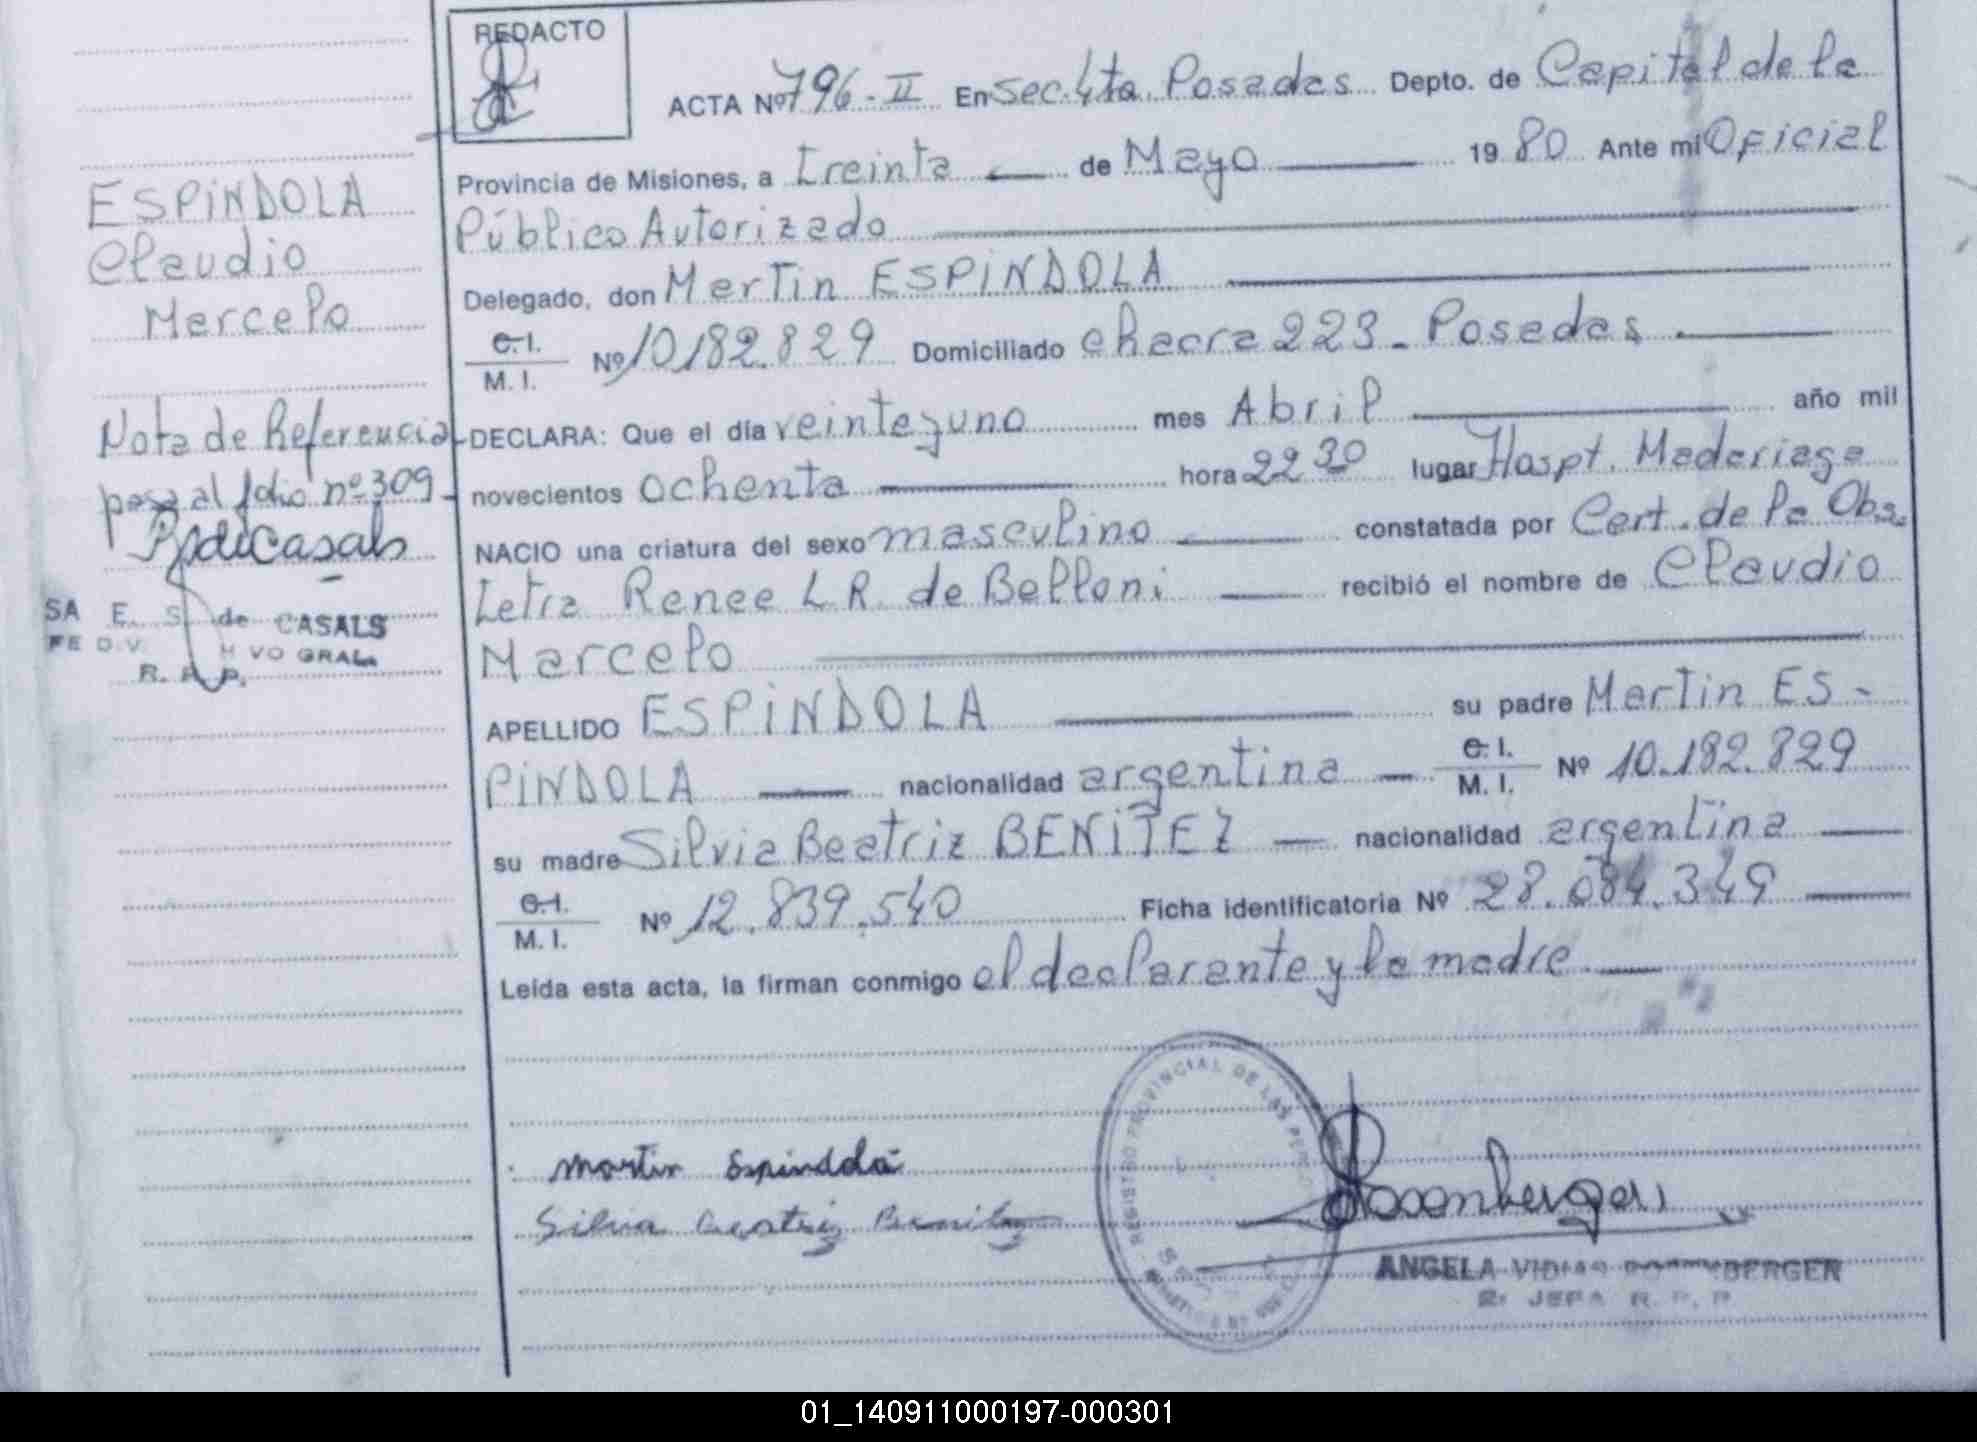 REDACTO
ACTA Nº 796-II En Sec. 4ta. Posadas Depto. de Capital de la
Provincia de Misiones, a Treinta de Mayo 1980 Ante mi Oficial
Público Autorizado
Delegado, don Martin ESPINDOLA
C.I.
M.I. Nº 10.182.829 Domiciliado chacra 223 - Posadas
DECLARA: Que el día veinteyuno mes Abril año mil
novecientos ochenta hora 22 30 lugar Hospt. Madariaga
NACIO una criatura del sexo masculino constatada por Cert. de la Obs.
tetra Renee L.R. de Belloni recibió el nombre de Claudio
Marcelo
APELLIDO ESPINDOLA su padre Martin ES-
PINDOLA nacionalidad argentina C.I. M.I. Nº 10.182.829
su madre Silvia Beatriz BENITEZ nacionalidad argentina
C.I.
M.I. Nº 12.839.540 Ficha identificatoria Nº 28.084.349
Leída esta acta, la firman conmigo el declarante y la madre
Martin Espindola
Silvia Beatriz Benitez
REGISTRO PROVINCIAL DE LAS
Rosenberger
ANGELA BERGER
JEFA R.P.P.
ESPINDOLA
Claudio
Marcelo
Nota de Referencia
pasa al folio nº 309
de Casals
SA E. S. de CASALS
VO GRAL.
R. P. P.
01_140911000197-000301